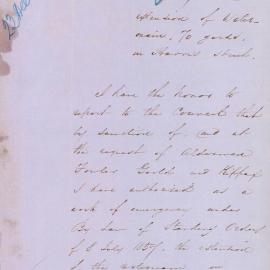 extension of water
main, 70 yards,
in Harris Street.
I have the honor to
report to the Council that
by sanction of, and at
the request of Aldermen
Fowler Gould and
I have authorised as a
work of emergency under
By Law of Standing Orders
of 2 July 1857, the extension
of the watermain in